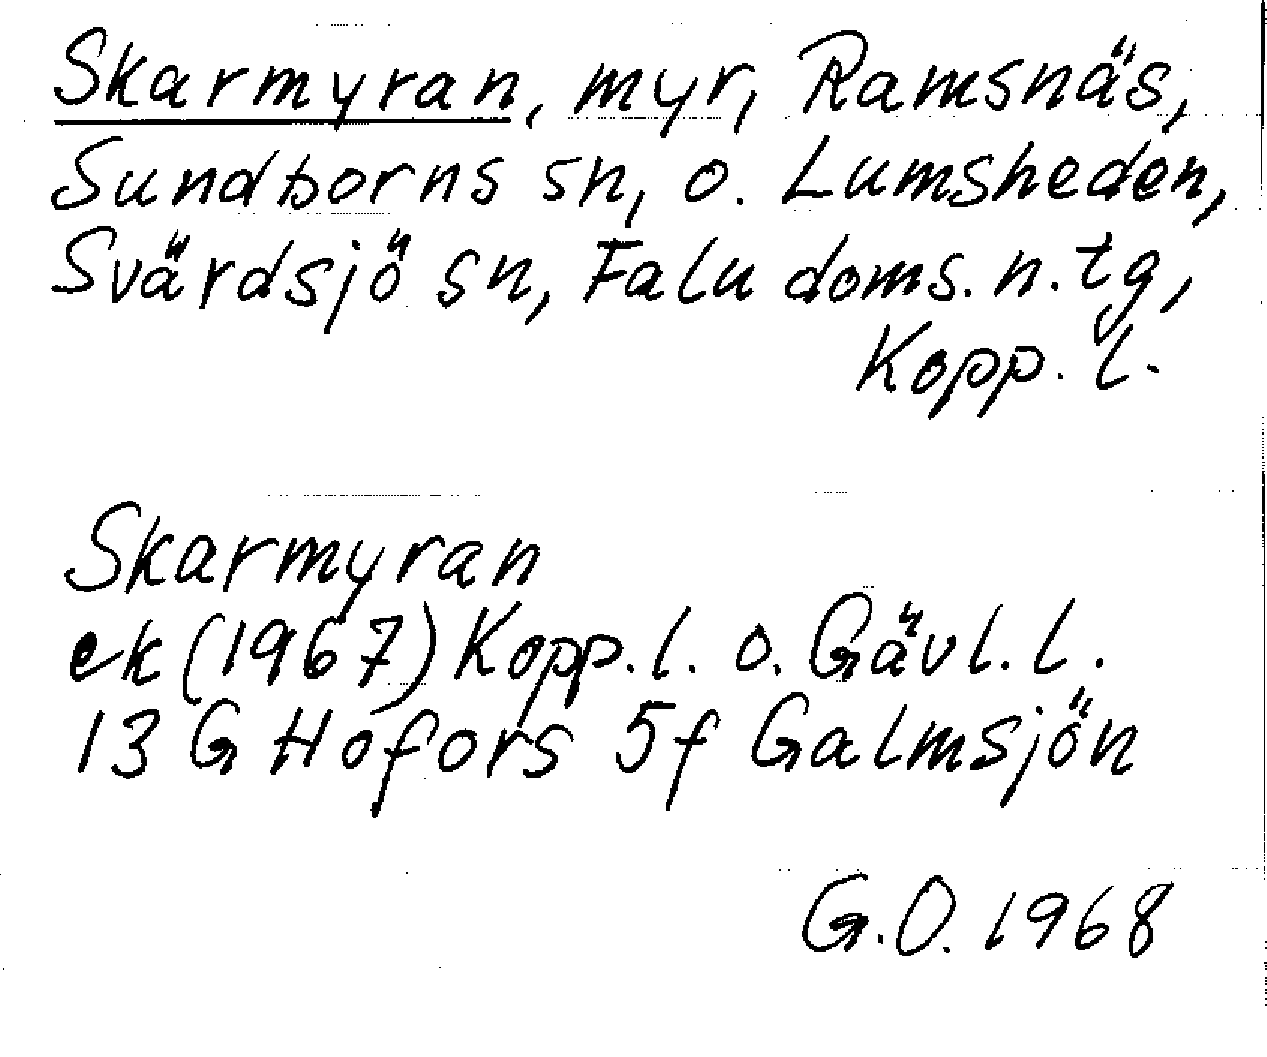 Skarmyran, myr, Ramsnäs,
Sundborns sn, o. Lumsheden,
Svärdsjö sn, Falu doms. n. tg,
Kopp. l.
Skarmyran
ek (1967) Kopp. l. o. Gävl. l.
13 G Hofors 5f Galmsjön
G.O. 1968